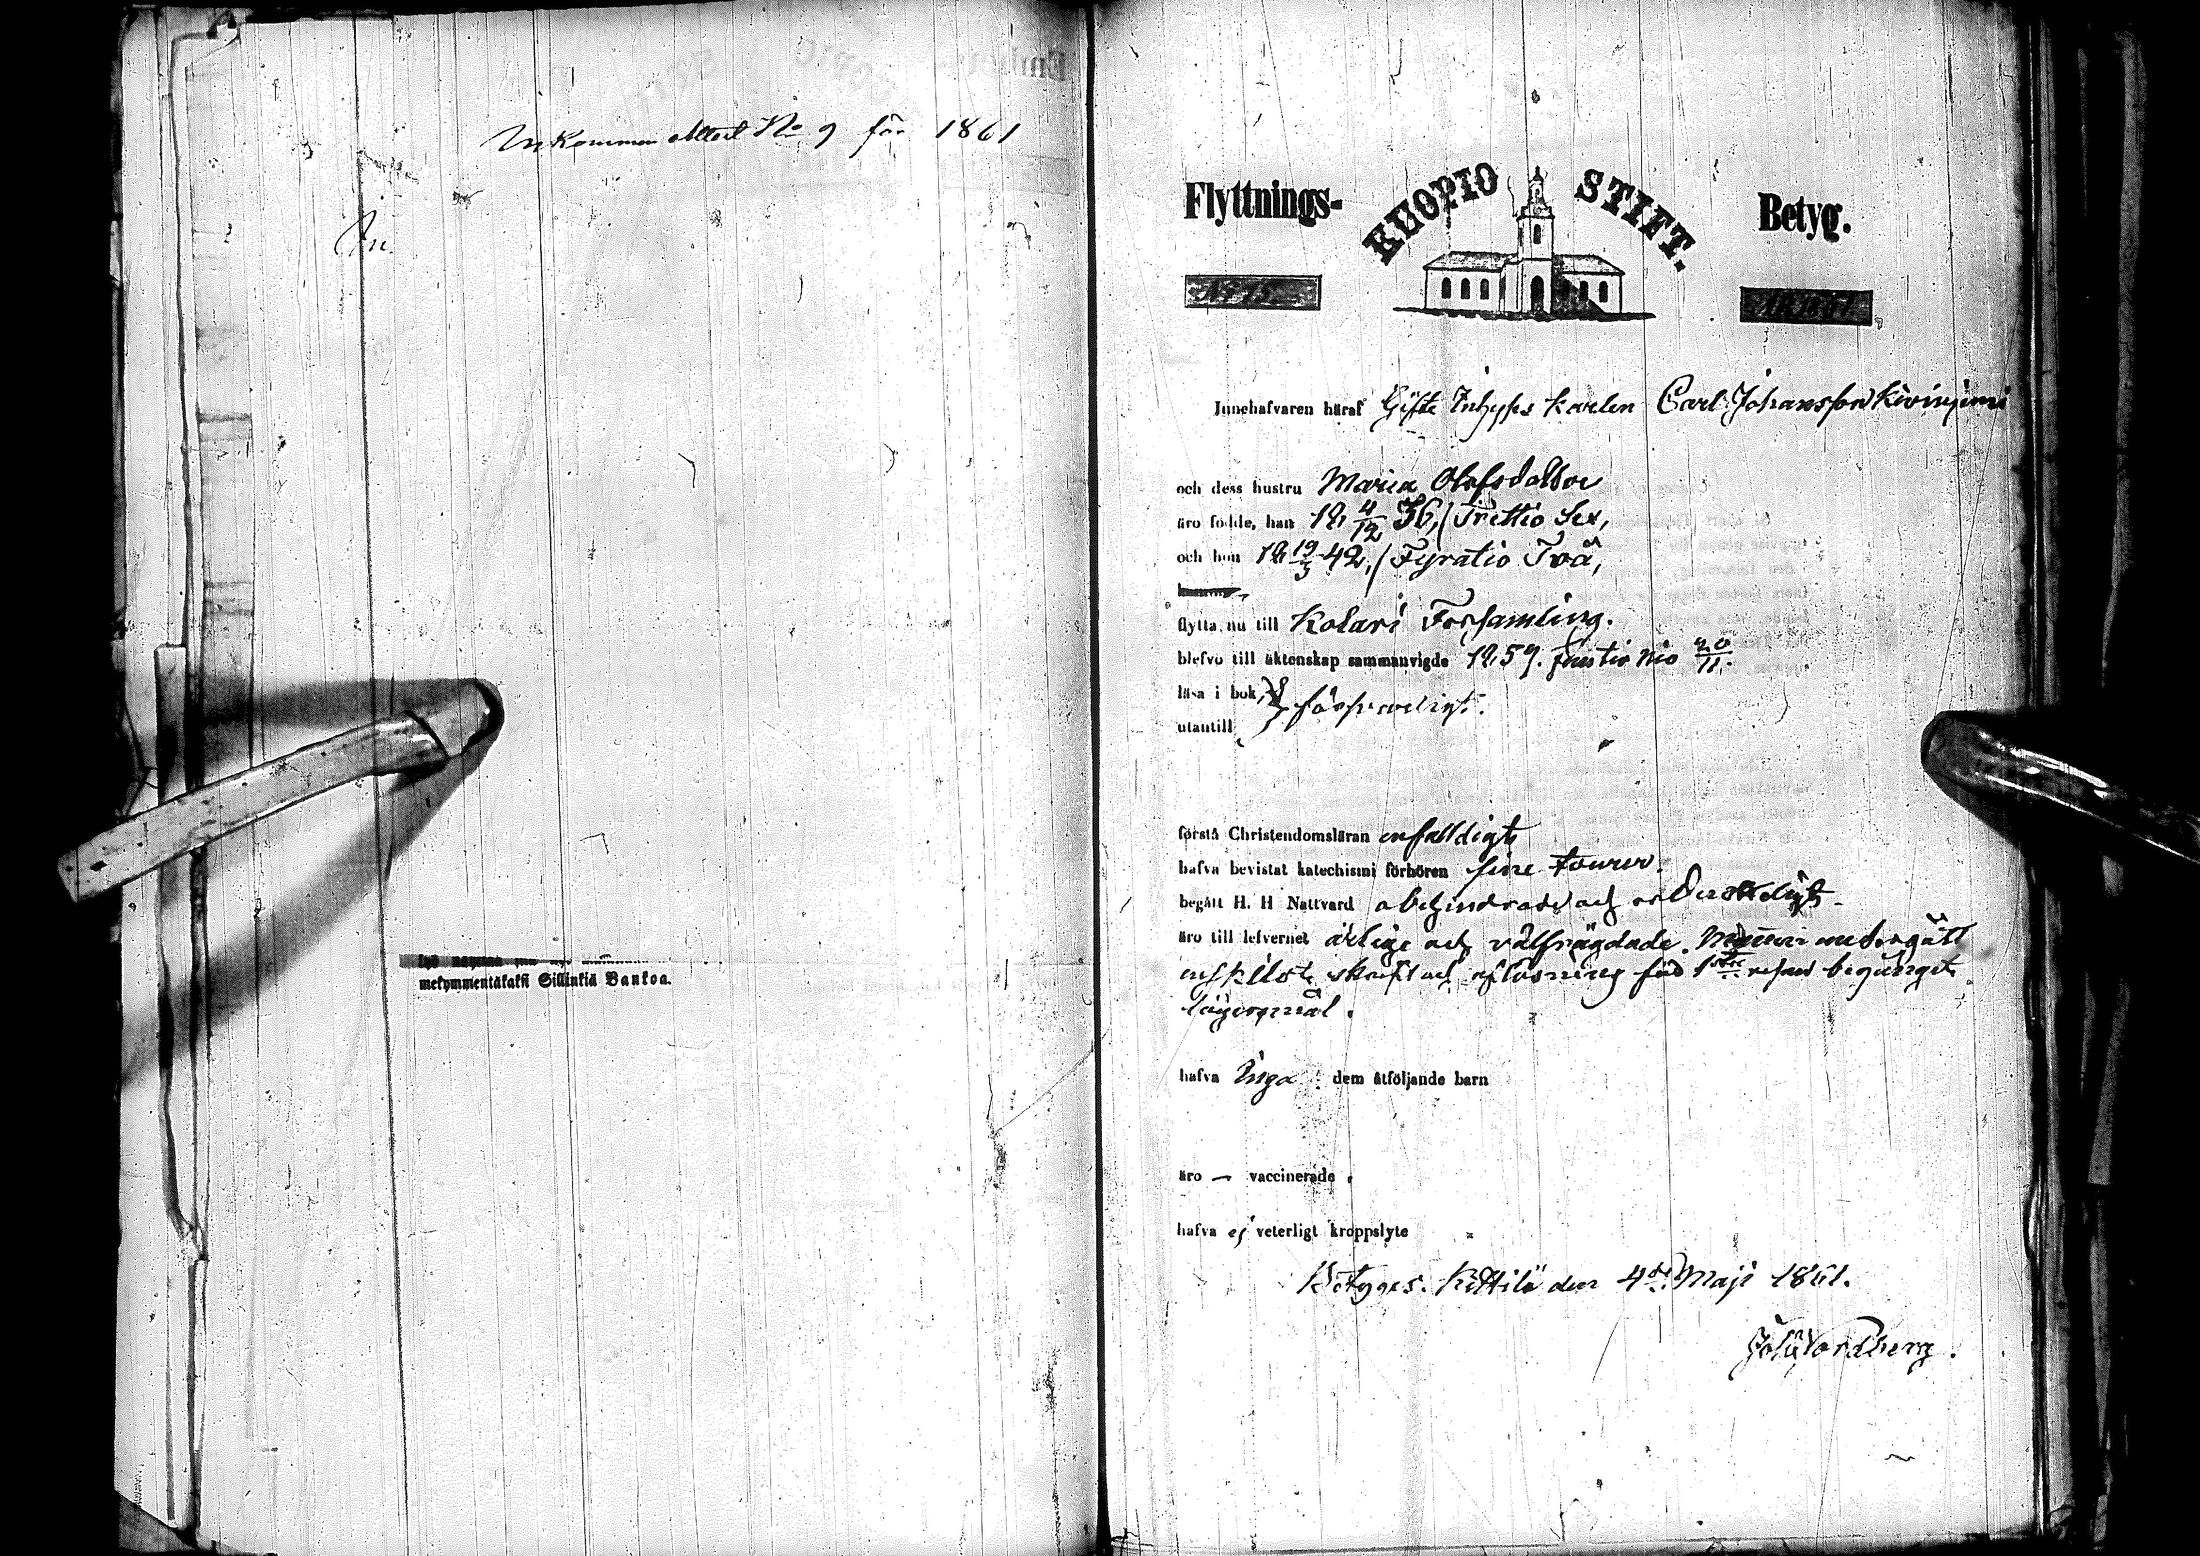 Inkommen Attest No 9 för 1861
In.
mekymmentäkaksi Sillinkiä Bankoa.
Flyttnings- KUOPIO STIFT. Betyg.
No 15 År 1861.
Innehafvaren häraf Gifte Inhyses Karlen Carl Johansson Kiviniemi
och dess hustru Maria Olofsdotter
äro födde, han 18 4/12 36, / Trettio Sex,
och hon 18 19/3 42, / Fyratio Två,
flytta nu till Kolari Församling.
blefvo till äktenskap sammanvigde 1859. femtio nio 20/11.
läsa i bok, } försvarligt.
utantill
förstå Christendomsläran enfaldigt
hafva bevistat katechismi förhören sine tourer.
begått H. H Nattvard obehindrade och
äro till lefvernet ärlige och välfrägdade. undergått
enskildt skrift och aflösning för 1sta resan begånget
lägersmål.
hafva Inga dem åtföljande barn
äro — vaccinerade.
hafva ej veterligt kroppslyte
Betyges. Kittilä den 4de Maji 1861.
Joh Nordberg.